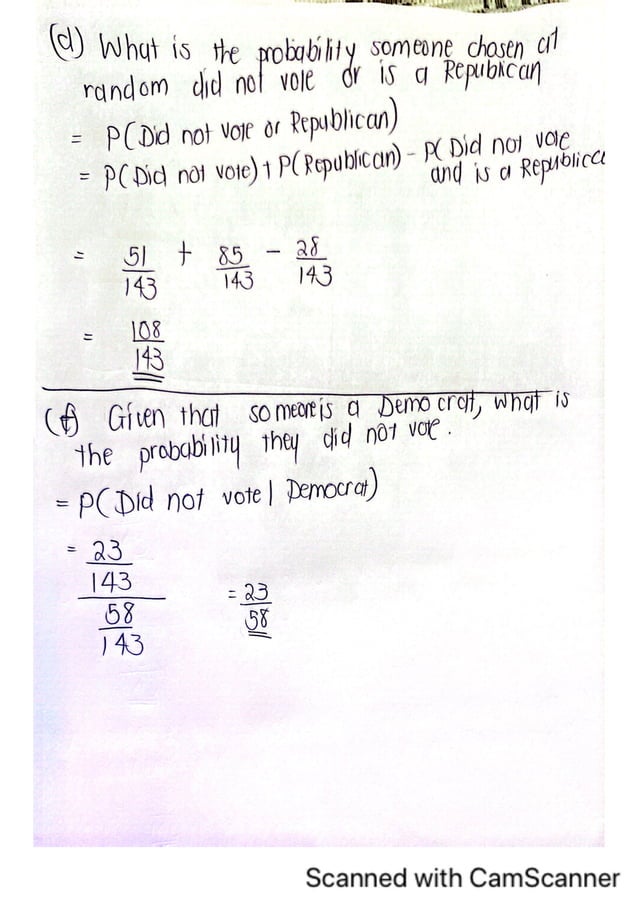 (d) What is the probability someone chosen at
random did not vote or is a Republican
= P(Did not vote or Republican)
= P(Did not vote) + P(Republican) - P( Did not vote
and is a Republica
= 51/143 + 85/143 - 28/143
= 108/143
(f) Given that someone is a Democrat, what is
the probability they did not vote.
= P(Did not vote | Democrat)
= 23/143 / 58/143 = 23/58
Scanned with CamScanner